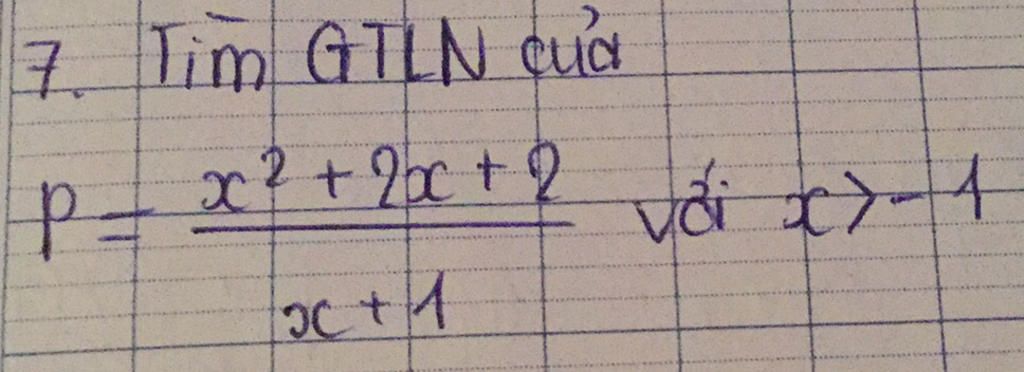 7. Tìm GTLN của
P = \frac{x^2 + 2x + 2}{x + 1} với x > -1